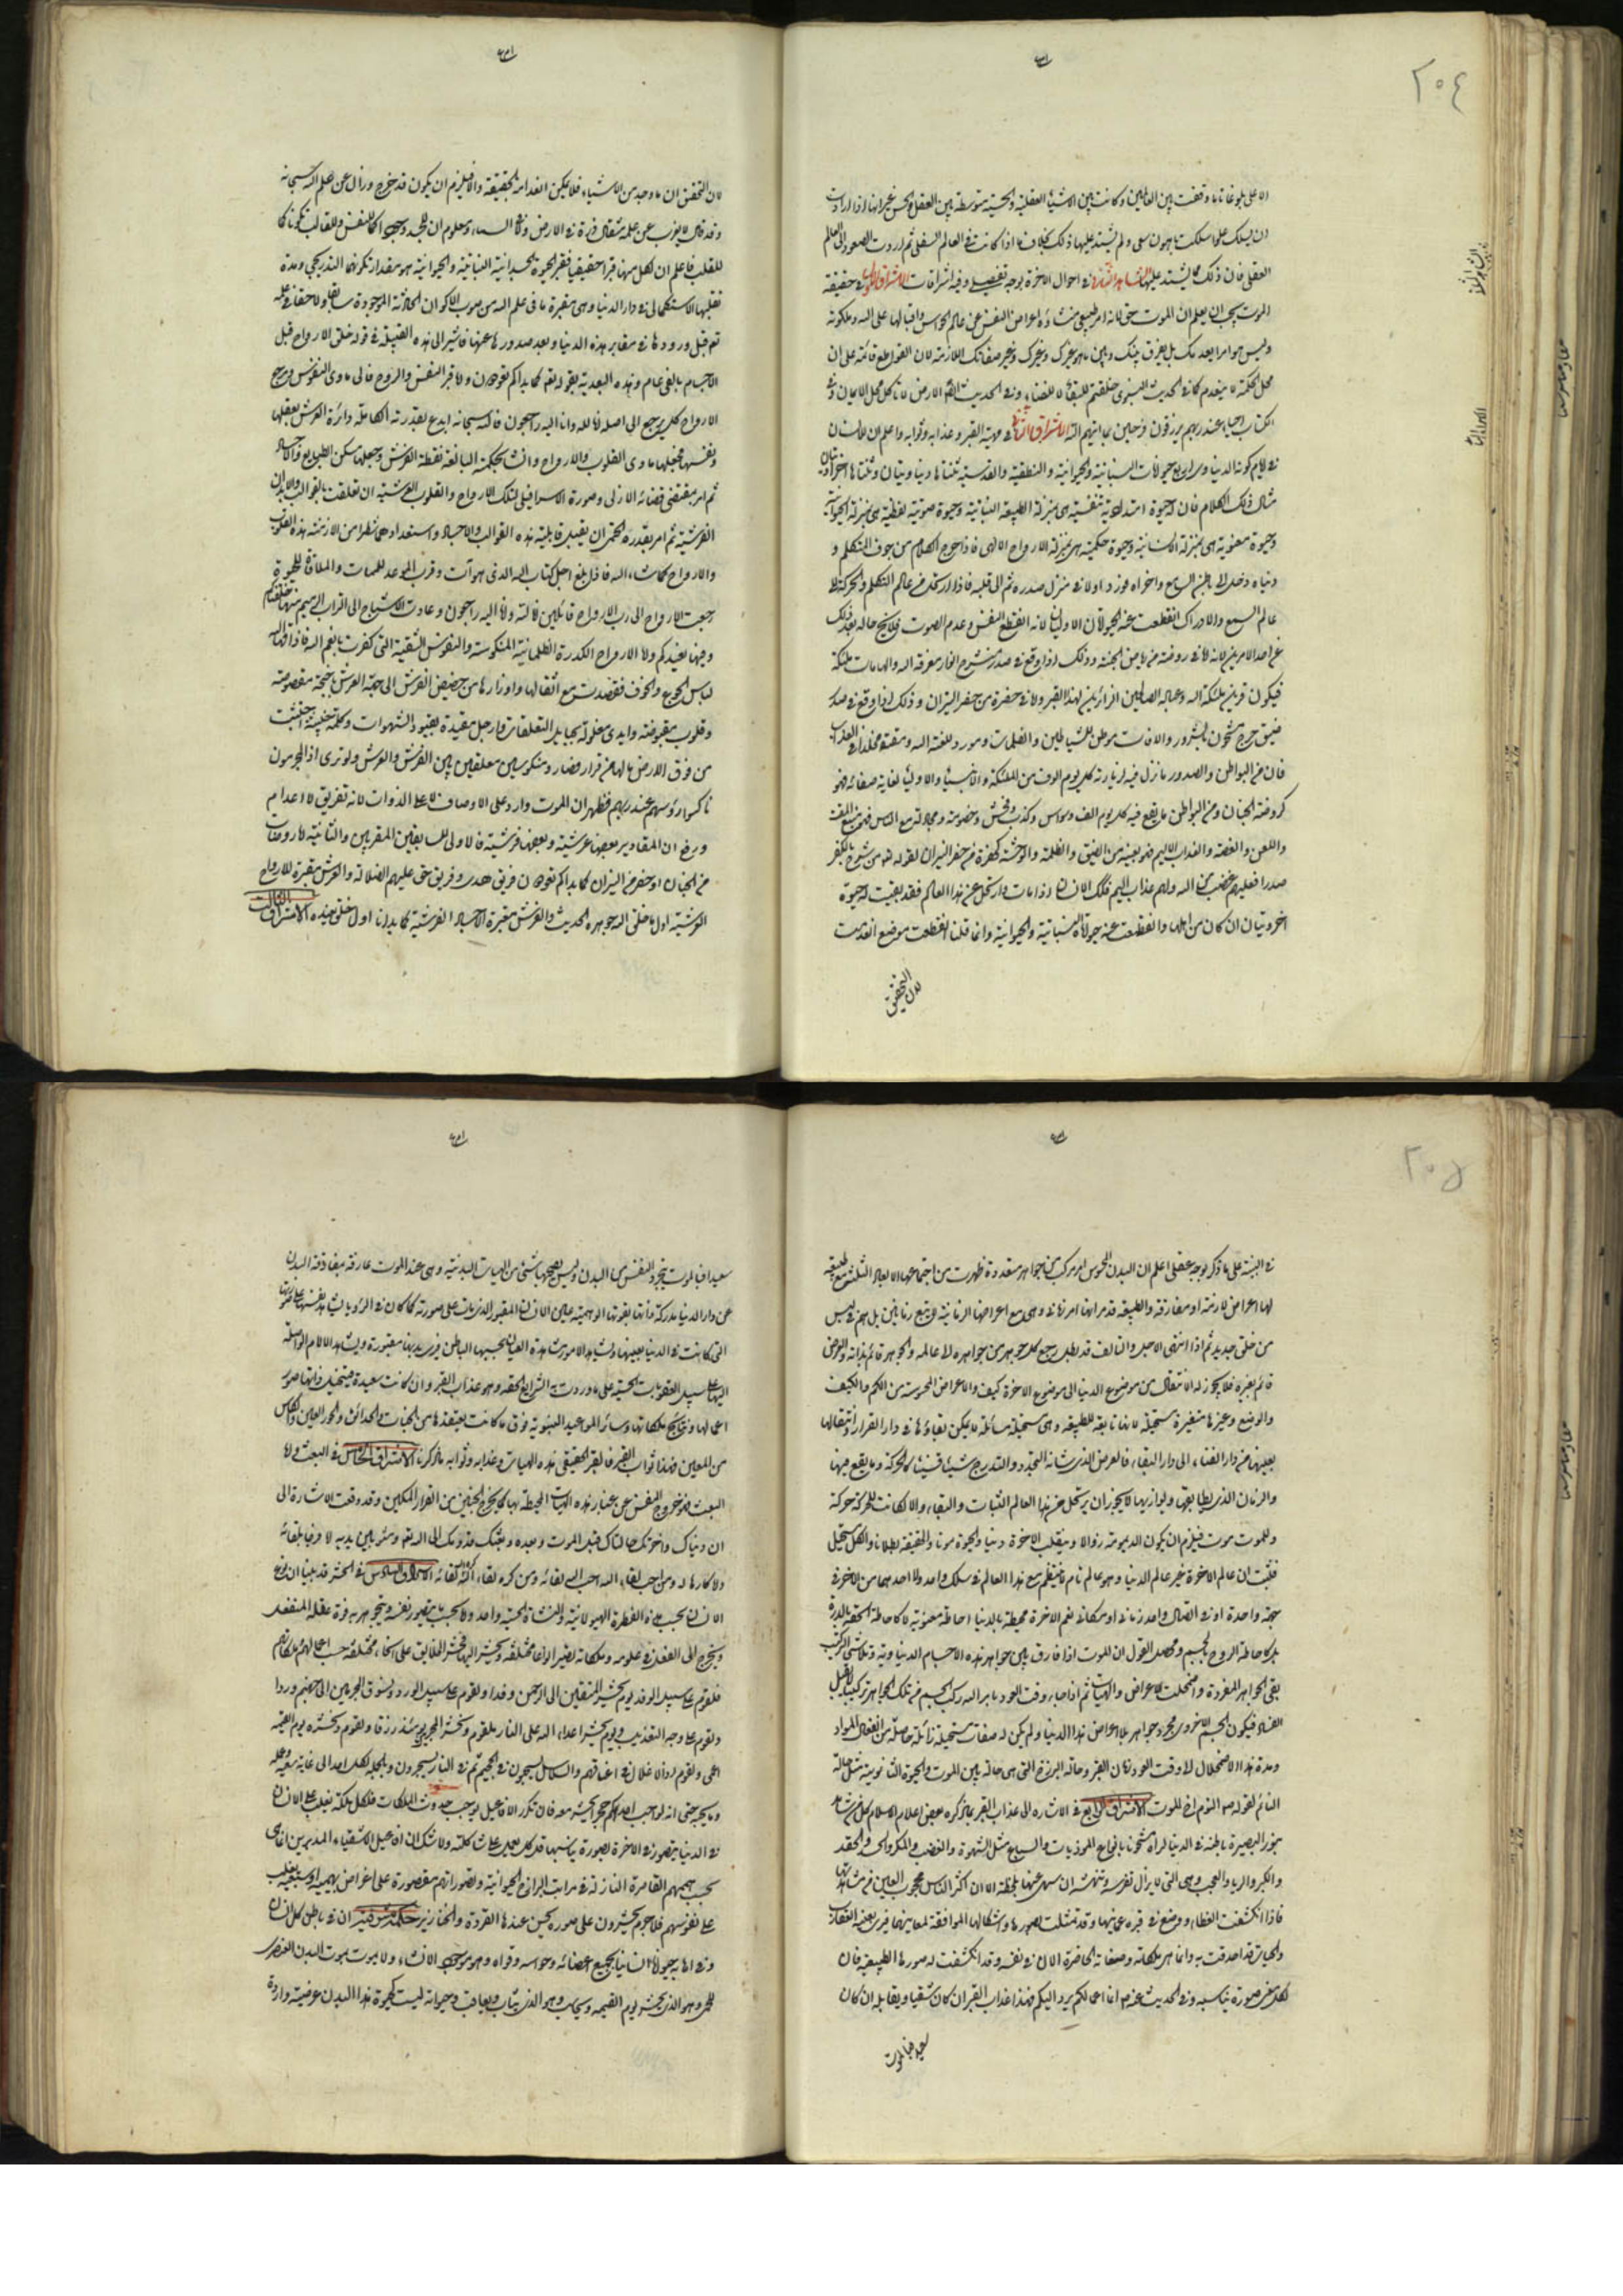 ٢٠٤
الاعلى بلوغاتنا ما وقفت بين العالمين وكانت بين الاشياء العقلية والحسية متوسطة بين العقل والحس غير انها اذا ارادت
ان يسلك علوا سلكت باهون سعى ولم يشتد عليها ذلك بخلاف ما اذا كانت في العالم السفلى ثم اردت الصعود الى العالم
العقلى فان ذلك مما يشتد عليها المشاهد الثالث في احوال الاخرة بوجه تفصيلى وفيه اشراقات الاشراق الاول في حقيقة
الموت يجب ان يعلم ان الموت حق لانه امر طبيعى منشاؤه اعراض النفس عن عالم الحواس واقبالها على الله وملكوته
وليس هو امرا يعدمك بل يفرق بينك وبين ما هو غيرك وغير صفاتك اللازمة لان القواطع قائمة على ان
محل الحكمة لا ينعدم كما في الحديث النبوى خلقتم للبقاء لا للفناء وفي الحديث ايضا الارض لا تاكل محل الايمان وفي
الكتاب احياء عند ربهم يرزقون فرحين بما اتيهم الله الاشراق الثانى في مهية القبر وعذابه وثوابه واعلم ان للانسان
في ايام كونه الدنياوى اربع حيوات النباتية والحيوانية والنطقية والقدسية ثنتاها دنياويتان وثنتاها اخراويتان
مثال ذلك الكلام فان له حيوة امتدادية تنفسية هي بمنزلة الطبيعة النباتية وحيوة صوتية لفظية هي بمنزلة الحيوانية
وحيوة معنوية هي بمنزلة الانسانية وحيوة حكمية هي بمنزلة الارواح الالهى فاذا خرج الكلام من جوف المتكلم و
دنياه دخل الى باطن السامع واخراه فورد اولا في منزل صدره ثم الى قلبه فاذا ارتحل من عالم التكلم والحركة الى
عالم السمع والادراك انقطعت عنه الحيوتان الاوليان لانه انقطع النفس وعدم الصوت فلا يخ حاله بعد ذلك
من احد الامرين لانه اما في روضة من رياض الجنة وذلك اذا وقع في صدر منشرح بانوار معرفة الله والهامات ملئكته
فيكون قرين ملئكة الله وعباده الصالحين الزائرين لهذا القبر واما في حفرة من حفر النيران وذلك اذا وقع في صدر
ضيق حرج مشحون بالشرور والافات موطن للشياطين والظلمات ومورد للعنة الله ومقته مخلدا في العذاب
فان من البواطن والصدور ما نزل فيه لزيارته كل يوم الوف من الملئكة والانبياء والاولياء لغاية صفائه فهو
كروضة الجنان ومن البواطن ما يقع فيه كل يوم الف وسواس وكذب وفحش وخصومة ومجادلة مع الناس فهو منبع المقت
واللعن والغصة والعذاب الاليم فهو بعينه من الضيق والظلمة والوحشة كحفرة من حفر النيران لقوله تعالى من شرح بالكفر
صدرا فعليهم غضب من الله ولهم عذاب اليم فكذلك الانسان اذا مات وارتحل عن هذا العالم فقد بقيت له حيوة
اخرويتان ان كان من اهلها وانقطعت عنه حيوتاه النباتية والحيوانية وانما قلنا انقطعت موضع انعدمت
لان التحقيق
لان التحقق ان ما وجد من الاشياء فلا يمكن انعدامه بالحقيقة والا فيلزم ان يكون قد خرج وزال عن علم الله سبحانه
وقد قال لا يعزب عن علمه مثقال ذرة في الارض ولا في السماء ومعلوم ان للجسد وجها كما للنفس وللقالب تكونا كما
للقلب فاعلم ان لكل منها قبرا حقيقيا فقبر الحيوة الجسدانية النباتية والحيوانية هو مقدار تكونها التدريجى ومدة
تقلبها الاستكمالى في دار الدنيا وهي مقبرة ما في علم الله من صور الاكوان الحادثة الموجودة سابقا ولاحقا في علمه
تعالى قبل ورودها في مقابر هذه الدنيا وبعد صدورها عنها فاشير الى هذه القبلية في قوله خلق الارواح قبل
الاجسام بالفى عام وهذه البعدية بقوله تعالى كما بداكم تعودون واما قبر النفس والروح فالى ماوى النفوس ومرجع
الارواح كل يرجع الى اصله انا لله وانا اليه راجعون فالله سبحانه ابدع بقدرته الكاملة دائرة العرش بعقلها
ونفسها فجعلها ماوى القلوب والارواح وانشا بحكمته البالغة نقطة الفرش وجعلها مسكن الطبايع والاجساد
ثم امر بمقتضى قضائه الازلى وصورة الاسرافيلى لتلك الارواح والقلوب العرشية ان تعلقت بالقوالب والابدان
الفرشية ثم امر بقدره الحتمى ان يقبل قابلية هذه القوالب والاجساد واستعدادها شطرا من الازمنة هذه القلوب
والارواح كما شاء الله فاذا بلغ اجل كتاب الله الذى هو آت وقرب الموعد للممات والملاقاة للحيوة
رجعت الارواح الى رب الارواح قائلين انا لله وانا اليه راجعون وعادت الاشباح الى التراب الرميم منها خلقناكم
وفيها نعيدكم واما الارواح الكدرة الظلمانية المنكوسة والنفوس الشقية التى كفرت بانعم الله فاذاقها الله
لباس الجوع والخوف فقصدت مع اثقالها واوزارها من حضيض الفرش الى جهة العرش باجنحة مقصوصة
وقلوب مقبوضة وايدى مغلولة بحبايل التعلقات وارجل مقيدة بقيود الشهوات وكلمة خبيثة اجتثت
من فوق الارض ما لها من قرار فصاروا منكوسين معلقين بين الفرش والعرش ولو ترى اذ المجرمون
ناكسوا رؤسهم عند ربهم فظهر ان الموت وارد على الاوصاف لا على الذوات لانه تفريق لا اعدام
ورفع ان المقابر بعضها عرشية وبعضها فرشية فالاولى للسابقين المقربين والثانية اما روضات
من الجنان او حفر من النيران كما بداكم تعودون فريق هدى وفريق حق عليهم الضلالة والعرش مقبرة للارواح
العرشية اول ما خلق الله جوهرة الحديث والفرش مقبرة الاجساد الفرشية كما بدانا اول خلق نعيده الاشراق الثالث
٢٠٥
في البينة على ما ذكر بوجه عقلى اعلم ان البدن المحسوس امر مركب من جواهر متعددة ظهرت من اجتماعها الابعاد الثلثة مع طبيعته
لها اعراض لازمة او مفارقة والطبيعة قد مر انها امر زمانى وهي مع اعراضها الزمانية
من خلق جديد ثم اذا انتهى الاجل والتالف قد بطل رجع كل جوهر من جواهره الى عالمه والجوهر قائم بذاته والعرض
قائم بغيره فلا يجوز له الانتقال من موضوع الدنيا الى موضوع الاخرة كيف والاعراض المحسوسة من الكم والكيف
والوضع وغيرها متغيرة مستحيلة لانها تابعة للطبيعة وهي مستحيلة سائلة لا يمكن بقاؤها في دار القرار وانتقالها
بعينها من دار الفناء الى دار البقاء فالعرض الذى شانه التجدد والتدرج شيئا فشيئا كالحركة وما يقع فيها
والزمان الذى يطابقها ويوازيها لا يجوز ان يرتحل من هذا العالم الى عالم الثبات والبقاء والا لكانت للحركة حركة
وللموت موت فيلزم ان يكون الديمومة زوالا وينقلب الاخرة دنيا والحيوة موتا والحقيقة بطلانا والكل مستحيل
فثبت ان عالم الاخرة غير عالم الدنيا وهو عالم تام لا ينتظم مع هذا العالم في سلك واحد ولا احدهما من الاخر في
جهة واحدة او في اتصال واحد زمانى او مكانى نعم الاخرة محيطة بالدنيا احاطة معنوية لا كاحاطة الحقة بالدرة
بل كاحاطة الروح بالجسم ومحصل القول ان الموت اذا فارق بين جواهر هذه الاجسام الدنياوية وتلاشى التركيب
بقى الجواهر المفردة واضمحلت الاعراض والهيئات ثم اذا جاء وقت العود بامر الله ركب الجسم من تلك الجواهر تركيبا لا يقبل
الفساد فيكون الجسم الاخروى مجرد جواهر بلا اعراض هذا الدنيا ولم يكن له صفات مستحيلة زائلة حاصلة من انفعال المواد
ومدة هذا الاضمحلال الى وقت العود زمان القبر وحالة البرزخ التى هي حالة بين الموت والحيوة الثانوية مثل حالة
النائم لقوله ص النوم اخ الموت الاشراق الرابع في الاشارة الى عذاب القبر بما ذكره بعض اعلام الاسلام كل من شاهد
بنور البصيرة باطنه في الدنيا لراه مشحونا بانواع الموذيات والسباع مثل الشهوة والغضب والمكر والحسد والحقد
والكبر والرياء والعجب وهي التى لا يزال تفترسه وتنهشه ان سهى عنها بلحظة الا ان اكثر الناس محجوب العين عن مشاهدتها
فاذا انكشفت الغطاء ووضع في قبره عاينها وقد تمثلت بصورها واشكالها الموافقة لمعانيها فيرى بعينه العقارب
والحيات قد احدقت به وانما هي ملكاته وصفاته الحاضرة الان في نفسه وقد انكشفت له صورها الطبيعية فان
لكل معنى صورة تناسبه وفي الحديث عنه ص انما هي اعمالكم يرد اليكم فهذا عذاب القبر ان كان شقيا ويقابله ان كان
سعيدا فبالموت
سعيدا فبالموت يتجرد النفس من البدن وليس يصحبها شئ من الهيات البدنية وهي عند الموت عارفة بمفارقة البدن
عن دار الدنيا مدركة ذاتها بقوتها الوهمية عين الانسان المقبور الذى مات على صورته كما كان في الرؤيا يشاهد نفسها على صورتها
التى كانت في الدنيا بعينها ويشاهد الامور مشاهدة العيان بحسها الباطن فيرى بدنها مقبورة ويشاهد الالام الواصلة
اليها على سبيل العقوبات الحسية على ما وردت به الشرايع الحقة وهو عذاب القبر وان كانت سعيدة فيتخيل ذاتها صور
اعمالها ونتايج ملكاتها وسائر المواعيد النبوية فوق ما كانت يعتقدها من الجنات والحدائق والحور العين والكاس
من المعين فهذا ثواب القبر فالقبر الحقيقى هذه الهيات وعذابه وثوابه ما ذكرنا الاشراق الخامس في البعث واما
البعث فهو خروج النفس عن غبار هذه الهيات المحيطة بها كما يخرج الجنين من القرار المكين وقد وقعت الاشارة الى
ان دنياك واخرتك حالتاك قبل الموت وبعده وبعثك قدومك الى الله تعالى ومثولا بين يديه اما فرحا بلقائه
واما كارها له ومن احب لقاء الله احب الله لقائه ومن كره لقاء الله كره الله لقائه الاشراق السادس في الحشر قد بينا ان نوع
الانسان بحسب هذه الفطرة الهيولانية والنشاة الحسية واحد واما بحسب ما يتصور نفسه ويتجوهر به قوة عقله المنفعل
ويخرج الى الفعل في علومه وملكاته يصير انواعا مختلفة ويحشر اليها فحشر الخلايق على انحاء مختلفة حسب اعمالهم وملكاتهم
فلقوم على سبيل الوفد يوم نحشر المتقين الى الرحمن وفدا ولقوم على سبيل الورد ونسوق المجرمين الى جهنم وردا
ولقوم على وجه التعذيب ويوم يحشر اعداء الله على النار ولقوم ونحشر المجرمين يومئذ زرقا ولقوم ونحشره يوم القيمة
اعمى ولقوم اذ الاغلال في اعناقهم والسلاسل يسحبون في الحميم ثم في النار يسجرون وبالجملة لكل احد الى غاية سعيه وعمله
وما يحبه حتى انه لو احب احدكم حجرا لحشر معه فان تكرر الافاعيل يوجب حدوث الملكات فكل ملكة تغلب على الانسان
في الدنيا يتصور في الاخرة بصورة يناسبها قل كل يعمل على شاكلته ولا شك ان افاعيل الاشقياء المدبرين انما هي
بحسب هممهم القاصرة النازلة في مراتب البرازخ الحيوانية وتصوراتهم مقصورة على اغراض بهيمية او سبعية تغلب
على نفوسهم فلا جرم يحشرون على صورة يحسن عندها القردة والخنازير حكمة مشرقية ان في باطن كل انسان
وفي اهابه حيوانا انسانيا بجميع اعضائه وحواسه وقواه وهو موجود الان ولا يموت بموت البدن العنصرى
للحمى وهو الذى يحشر يوم القيمة ويحاسب وهو الذى يثاب ويعاقب وحيوته ليست كحيوة هذا البدن عرضية واردة